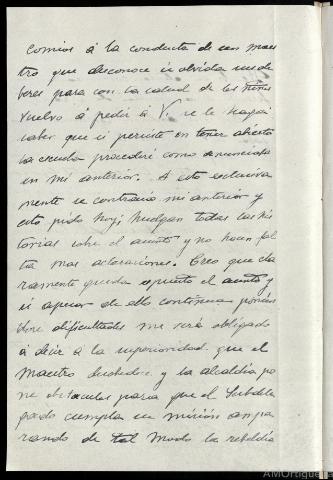 comios á la conducta de un maes
tro que desconoce ú olvida sus de
beres para con la salud de los niños
vuelvo á pedir á V. se le haga
saber que si persiste en tener abierta
la escuela procederé como denunciaba
en mi anterior. A esto exclusiva
mente se contraía mi anterior y
esto pido hoy; huelgan todas las his
torias sobre el asunto y no hacen fal
ta mas aclaraciones. Creo que cla
ramente queda expuesto el asunto y
si apesar de ello continua ponien
dose dificultades me veré obligado
á decir á la superioridad que el
Maestro desobedece y la alcaldia po
ne obstaculos para que el Subdele
gado cumpla su misión ampa
rando de tal modo la rebeldia
AMOrtigueira